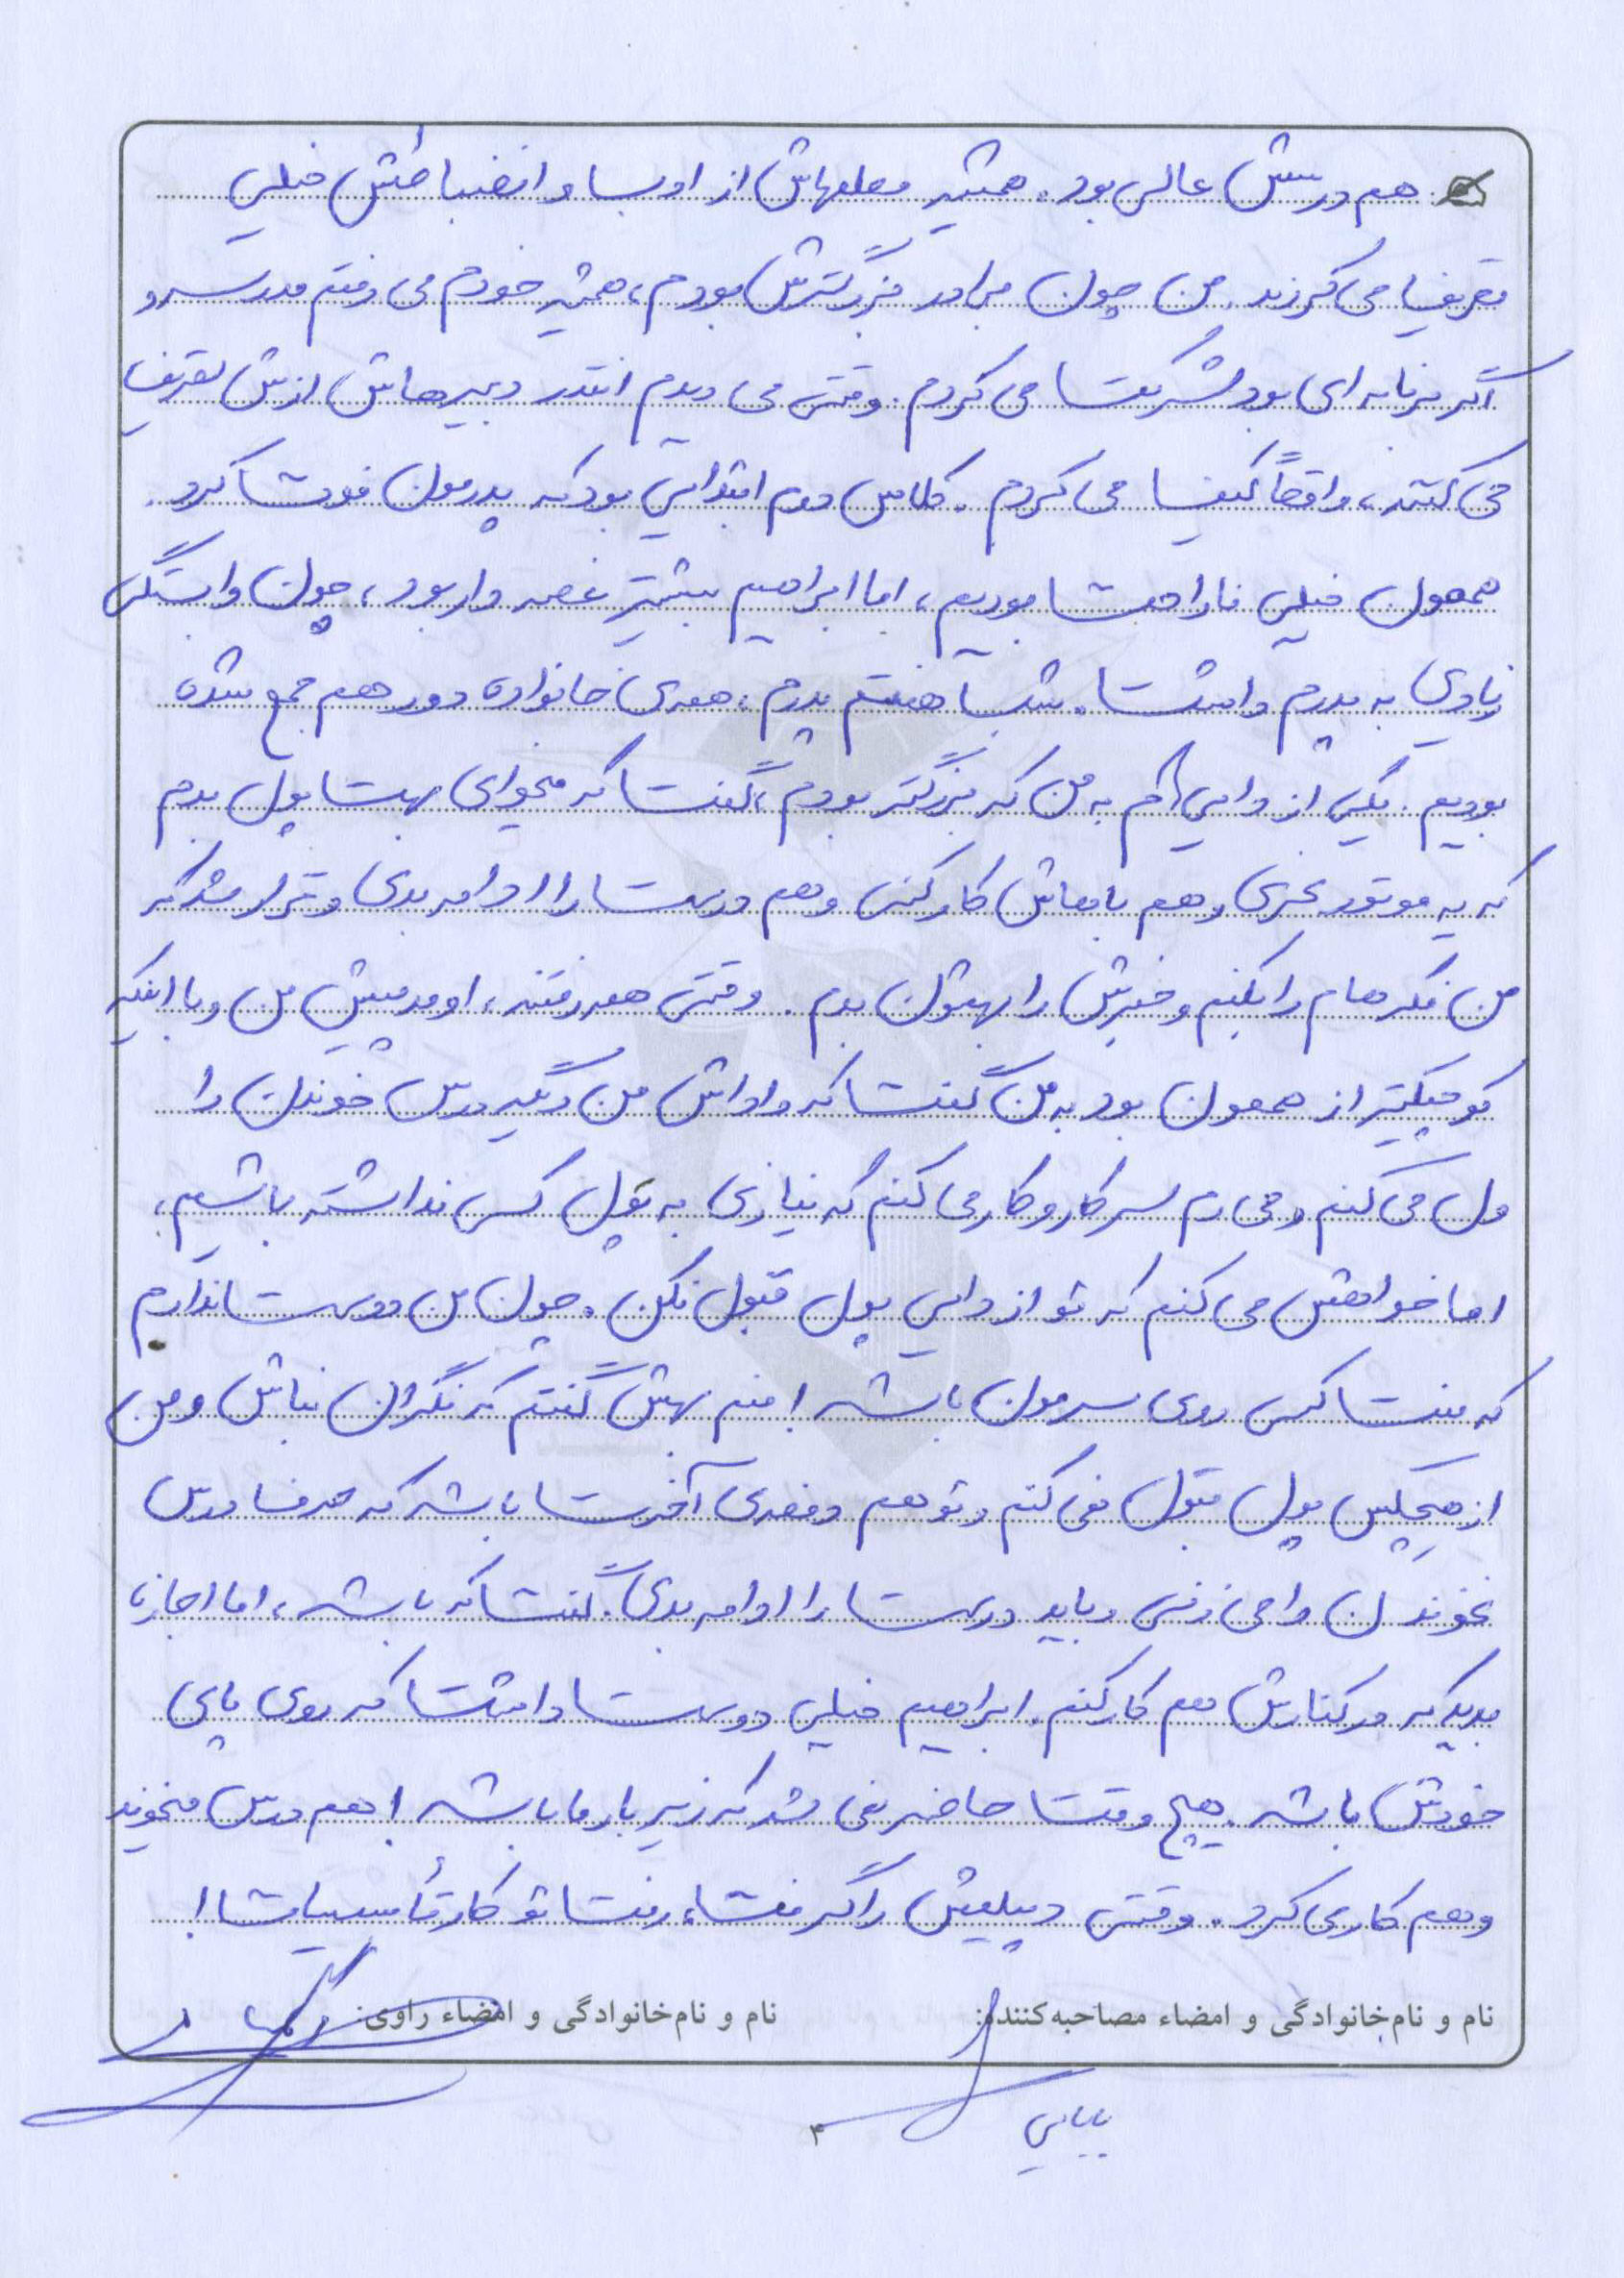 هم درسش عالی بود. همیشه معلمهاش از ادب و انضباطش خیلی
تعریف می کردند. من چون برادر بزرگترش بودم، همیشه خودم می رفتم مدرسه و
اگر برنامه ای بود شرکت می کردم. وقتی می دیدم انقدر دبیرهاش ازش تعریف
می کنند، واقعاً کیف می کردم. کلاس دوم ابتدایی بود که پدرمون فوت کرد.
هممون خیلی ناراحت بودیم، اما ابراهیم بیشتر غصه دار بود، چون وابستگی
زیادی به پدرم داشت. شب هفتم پدرم، همه ی خانواده دور هم جمع شده
بودیم. یکی از دایی هام به من که بزرگتر بودم، گفت که میخوای بهت پول بدم
که یه موتور بخری و هم باهاش کار کنی و هم درست را ادامه بدی و قرار شد که
من فکرهام را بکنم و خبرش را بهشون بدم. وقتی همه رفتند، اومد پیش من و با اینکه
کوچیکتر از هممون بود به من گفت که داداش من دیگه درس خوندن را
ول می کنم و می رم سر کار و کار می کنم که نیازی به پول کسی نداشته باشیم،
اما خواهش می کنم که تو از دایی پول قبول نکن. چون من دوست ندارم
که منت کسی روی سرمون باشه! منم بهش گفتم که نگران نباش و من
از هیچکس پول قبول نمی کنم و تو هم دفعه ی آخرت باشه که حرف درس
نخوندن را می زنی و باید درست را ادامه بدی. گفت که باشه، اما اجازه
بدید که در کنارش هم کار کنم. ابراهیم خیلی دوست داشت که روی پای
خودش باشه. هیچ وقت حاضر نمی شد که زیر بار ما باشه! هم درس میخوند
و هم کار می کرد. وقتی دیپلمش را گرفت، رفت تو کار تأسیسات!
نام و نام‌خانوادگی و امضاء مصاحبه‌کننده: نام و نام‌خانوادگی و امضاء راوی:
بابایی
۴